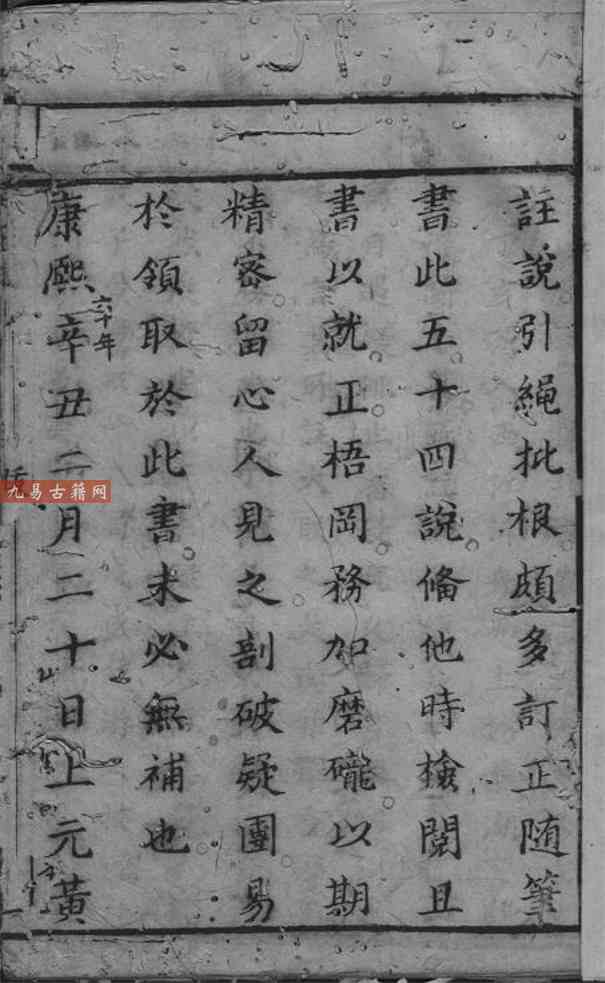 註說引繩批根頗多訂正随筆
書此五十四說俻他時撿閱且
書以就正梧岡務加磨礲以期
精宻留心人見之剖破疑團易
於領取於此書未必無補也
康熙辛丑二月二十日上元黃
六十年
九易古籍网